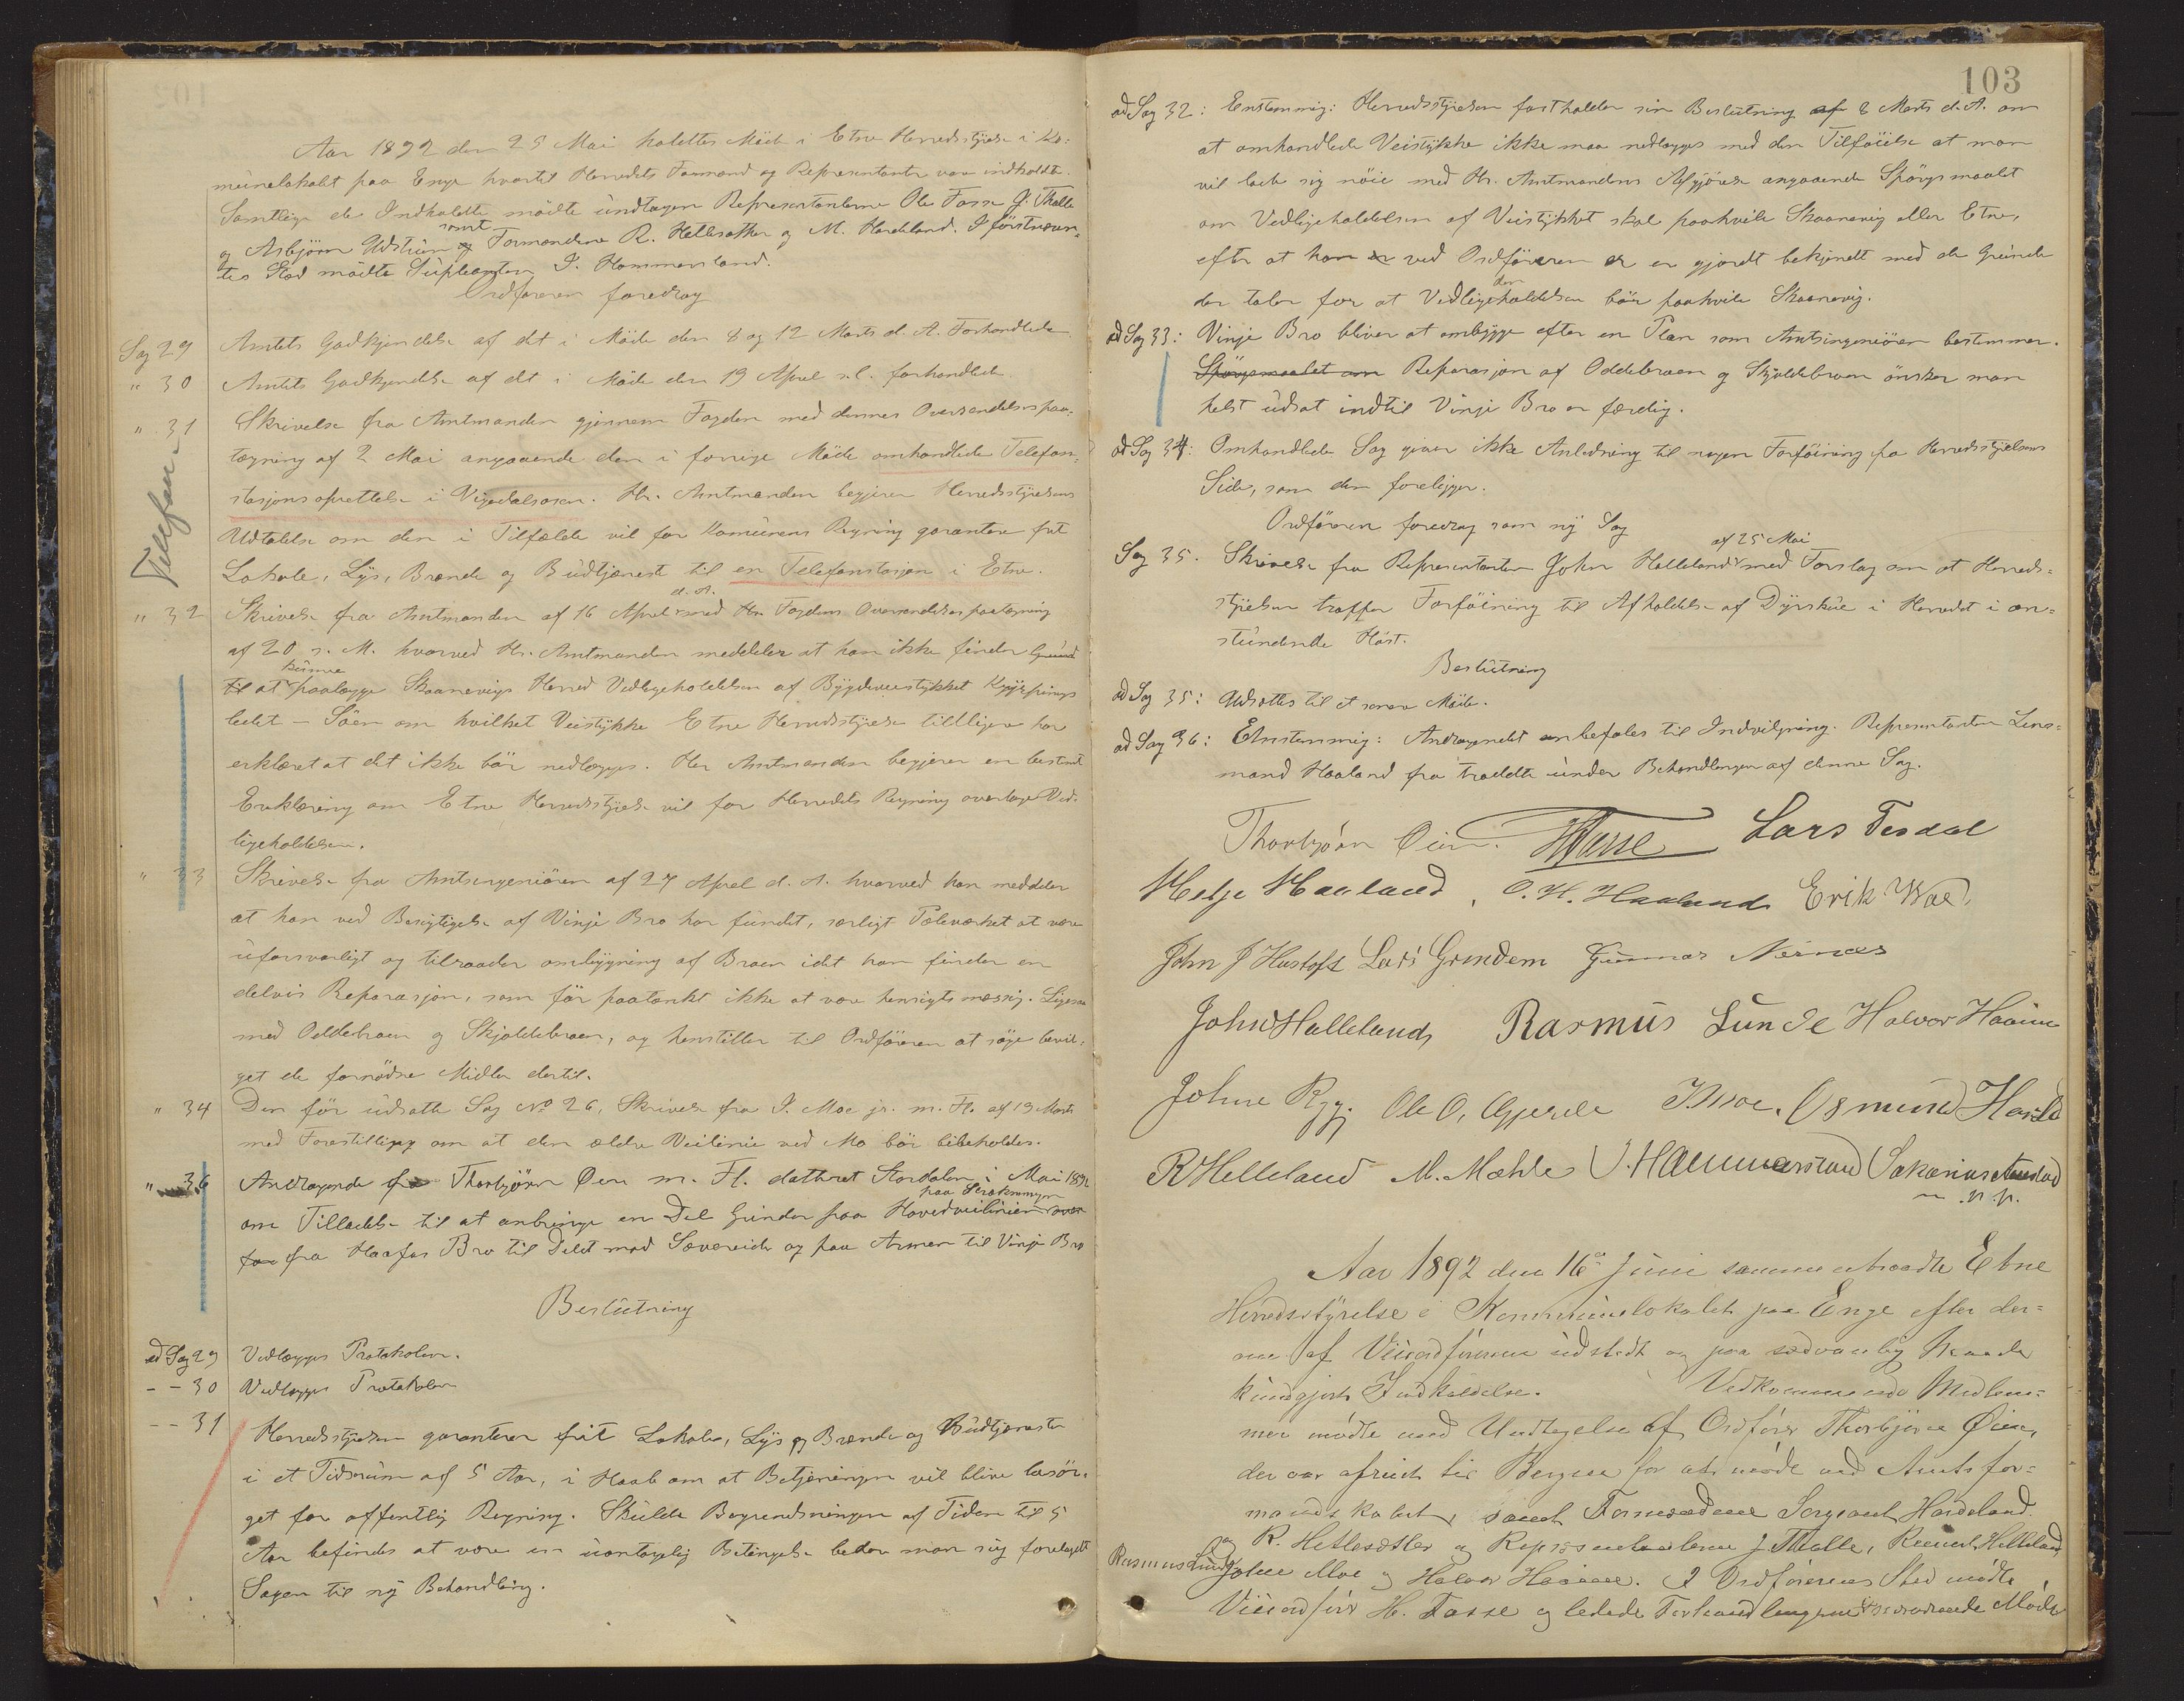 Aar 1892 den 25 Mai holdtes Møde i Etne Herredsstyrelse i Ko-
munelokalet paa Enge hvortil Herredets Formænd og Representanter var indkaldt.
Samtlige de Indkaldte mödte undtagen Representanterne Ole Fosse J. Tholle
og Asbjörn Udstuen samt Formændene R. Hetlesæther og M. Hardeland. I förstnævn-
tes Sted mödte Supleanten I. Hammersland.
Ordföreren foredrog
Sag 29 Amtets Godkjendelse af det i Möde den 8 og 12 Marts d. A. Forhandlede
" 30 Amtets Godkjendelse af det i Möde den 19 April s.l. forhandlede
" 31 Skrivelse fra Amtmanden gjennem Fogden med dennes Oversendelsespaa-
tegning af 2 Mai angaaende den i forrige Möde omhandlede Telefon-
stasjonsoprettelse i Vigedalsosen. Hr. Amtmanden begjærer Herredsstyrelsens
Telefon
Udtalelse om den i Tilfælde vil for Komunens Regning garantere frit
Lokale, Lys, Brænde og Budtjeneste til en Telefonstasjon i Etne.
" 32 Skrivelse fra Amtmanden af 16 April d. A. med Hr. Fogdens Oversendelsespaategning
af 20 s. M. hvorved Hr. Amtmanden meddeler at han ikke finder Grund
til at kunne paalægge Skaanevigs Herred Vedligeholdelsen af Bygdeveistykket Kyrpings
ledet - Söen om hvilket Veistykke Etne Herredsstyrelse tilligere har
erklæret at det ikke bör nedlægges. Her Amtmanden begjærer en bestemt
Erklæring om Etne Herredsstyrelse vil for Herredets Regning overtage Ved-
ligeholdelsen.
" 33 Skrivelse fra Amtsingeniören af 27 April d. A. hvorved han meddeler
at han ved Besigtigelse af Vinje Bro har fundet, særligt Pæleværket at være
uforsvarligt og tilraader ombygning af Broen idet han finder en
delvis Reparasjon, som för paatænkt ikke at være hensigtsmæssig. Ligesaa
med Oddebroen og Skjoldebroen, og henstiller til Ordföreren at söge bevil-
get de fornödne Midler dertil.
" 34 Den för udsatte Sag No 26, Skrivelse fra I. Moe jr. m. Fl. af 19 Marts
med Forestilling om at den ældre Veilinie ved Mo bör bibeholdes.
" 36 Andragende fra Thorbjörn Øen m. Fl. dateret Stordalen i Mai 1892
om Tilladelse til at anbringe en Del Grinder paa Hovedveilinien paa Strækningen
fra Haafos Bro til Delet mod Sævereide og paa Armen til Vinje Bro
Beslutning
ad Sag 29 Vedlægges Protokolen.
- - 30 Vedlægges Protokolen
- - 31 Herredsstyrelsen garanterer frit Lokale, Lys og Brænde og Budtjeneste
i et Tidsrum af 5 Aar, i Haab om at Betjeningen vil blive besör-
get for offentlig Regning. Skulde Begrændsningen af Tiden til 5
Aar befindes at være en uantagelig Betingelse beder man sig forelagt
Sagen til ny Behandling.
103
ad Sag 32: Enstemmig: Herredsstyrelsen fastholder sin Beslutning af 8 Marts d. A. om
at omhandlede Veistykke ikke maa nedlægges med den Tilföielse at man
vil lade sig nöie med Hr. Amtmandens Afgjörelse angaaende Spörgsmaalet
om Vedligeholdelsen af Veistykket skal paahvile Skaanevig eller Etne,
efter at han ved Ordföreren er gjordt bekjendt med de Grunde
der taler for at Vedligeholdelsen bör paahvile Skaanevig.
ad Sag 33: Vinje Bro bliver at ombygge efter en Plan som Amtsingeniören bestemmer.
Spörgsmaalet om Reparasjon af Oddebroen og Skjoldebroen önsker man
helst udsat indtil Vinje Bro er færdig.
ad Sag 34: Omhandlede Sag giver ikke Anledning til nogen Forföining fra Herredsstyrelsens
Side, som den foreligger.
Ordföreren foredrog som ny Sag
Sag 35. Skrivelse fra Representanten John Helleland af 25 Mai med Forslag om at Herreds-
styrelsen træffer Forföining til Afholdelse af Dyrskue i Herredet i an-
stundende Höst.
Beslutning
ad Sag 35: Udsættes til et senere Möde.
ad Sag 36: Enstemmig: Andragendet anbefales til Indvilgning. Representanten Lens-
mand Haaland fratraadte under Behandlingen af denne Sag.
Thorbjörn Øien. HFasse Lars Tesdal
Helje Haaland, O. H. Haaland Erik Moe,
John J Hustoft Lars Grindem Gunnar Nernæs
John Helleland, Rasmus Lunde Halvor Haaim
Johne Rygg. Ole O, Gjerde I Moe. Osmund Haaland
R Helleland M. Mæhle I. Hammersland Sakarias
m. p. p.
Aar 1892 den 16de Juni sammentraadte Etne
Herredsstyrelse i Kommunelokalet paa Enge efter der-
om af Viceordföreren udstedt og paa sedvanlig Maade
kundgjort Indkaldelse. Vedkommende Medlem-
mer mödte med Undtagelse af Ordförer Thorbjörn Øien,
der var afreist til Bergen for at möde ved Amtsfor-
mandskabet, samt Formændene Sergeant Hardeland
og R. Hetlesæther og Repræsentanterne J. Tholle, Reinert Helleland
Rasmus Lunde Johne Moe og Halvor Haaim. I Ordförerens Sted mödte
Viceordförer H. Fasse og ledede Forhandlingerne Möde